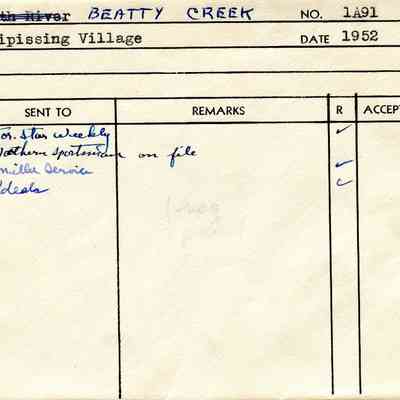 th River BEATTY CREEK NO. 1A91
ipissing Village DATE 1952
SENT TO REMARKS R ACCEP
Tor. Star Weekly ✓
Northern Sportsman on file
Miller Service ✓
Ideals